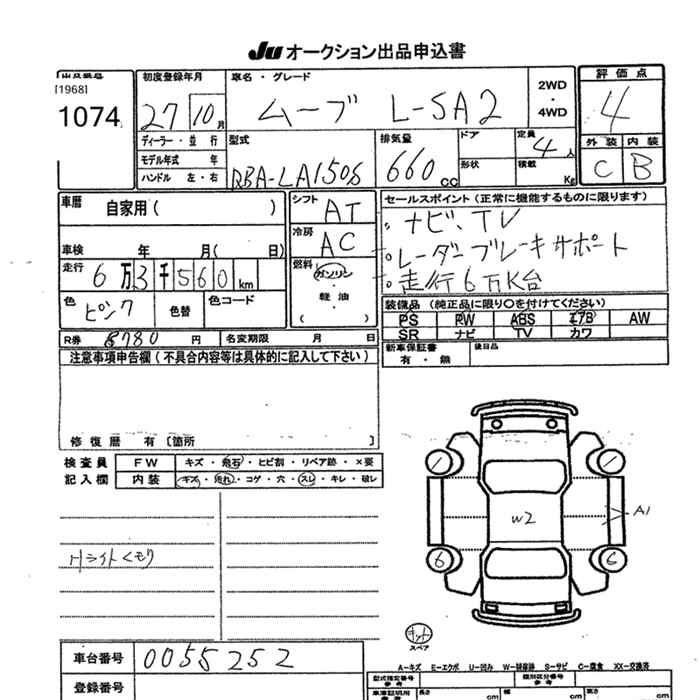 Ju オークション出品申込書
[1968]
1074
初度登録年月
27 10 月
ディーラー・並行
モデル年式 年
ハンドル 左・右
車名・グレード
ムーブ L-SA2
2WD
・
4WD
評価点
4
外装 内装
C B
型式
RBA-LA150S
排気量
660 cc
ドア
形状
定員
4 人
積載
Kg
車歴 自家用 ( )
車検 年 月( 日)
走行 6 万 3 千 5 6 0 km
色 ピンク 色替 色コード
R券 8780 円 名変期限 月 日
シフト AT
冷房 AC
燃料
ガソリン
・
軽油
( )
セールスポイント (正常に機能するものに限ります)
・ナビ、TV
・レーダーブレーキサポート
・走行6万K台
装備品 (純正品に限り○を付けてください)
PS PW ABS エアB AW
SR ナビ TV カワ
新車保証書
有・無
後日品
注意事項申告欄 (不具合内容等は具体的に記入して下さい)
修復歴 有 [箇所 ]
検査員
記入欄
FW キズ・飛石・ヒビ割・リペア跡・×要
内装 キズ・汚れ・コゲ・穴・スレ・キレ・破レ
Hライトくもり
W2
A1
6 6
キット
スペア
A-キズ E-エクボ U-凹み W-補修跡 S-サビ C-腐食 XX-交換済
車台番号 0055252
登録番号
型式指定番号
参考
類別区分番号
参考
車車証明用
長さ cm 幅 cm 高さ cm